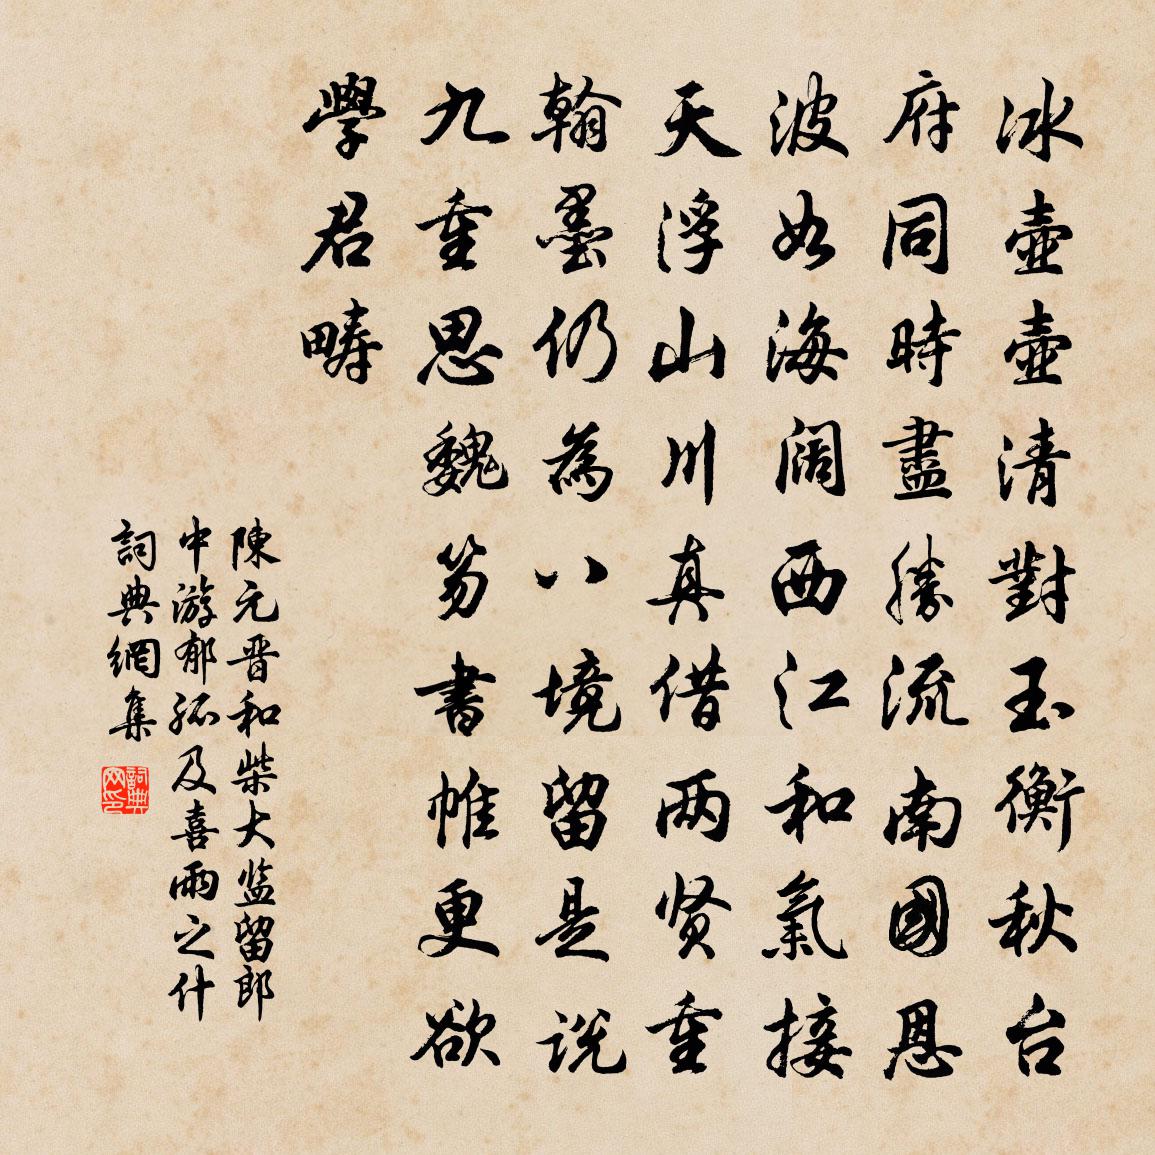 冰壺壺清對玉衡秋台
府同時盡勝流南國恩
波如海闊西江和氣接
天浮山川真借两贤重
翰墨仍為八境留是説
九重思魏笏書帷更欲
學君疇
陳元晋和柴大监留郎
中游郁孤及喜雨之什
詞典網集
詞典网印